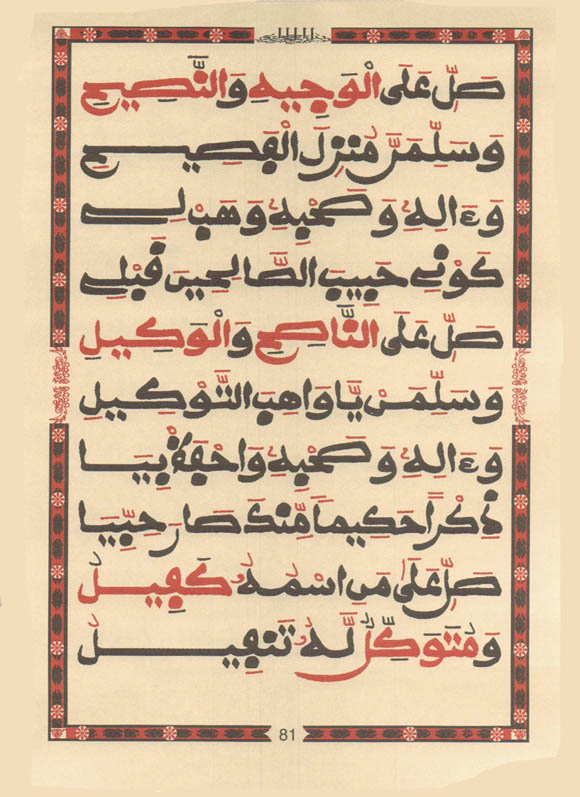 صَلِّ عَلَى الْوَجِيهِ وَالنَّصِيحِ
وَسَلِّمَنَّ مُنْزِلَ الْفَصِيحِ
وَءَالِهِ وَصَحْبِهِ وَهَبْ لِي
كَوْنِي حَبِيبَ الصَّالِحِينَ قَبْلِي
صَلِّ عَلَى النَّاصِحِ وَالْوَكِيلِ
وَسَلِّمَنْ يَّا وَاهِبَ التَّوْكِيلِ
وَءَالِهِ وَصَحْبِهِ وَاحْفَظْ بِيَا
ذِكْرًا حَكِيمًا مِّنكَ صَارَ حِبِّيَا
صَلِّ عَلَى مَنِ اسْمُهُ كَفِيلُ
وَمُتَوَكِّلٌ لَّهُ تَنْفِيلُ
81